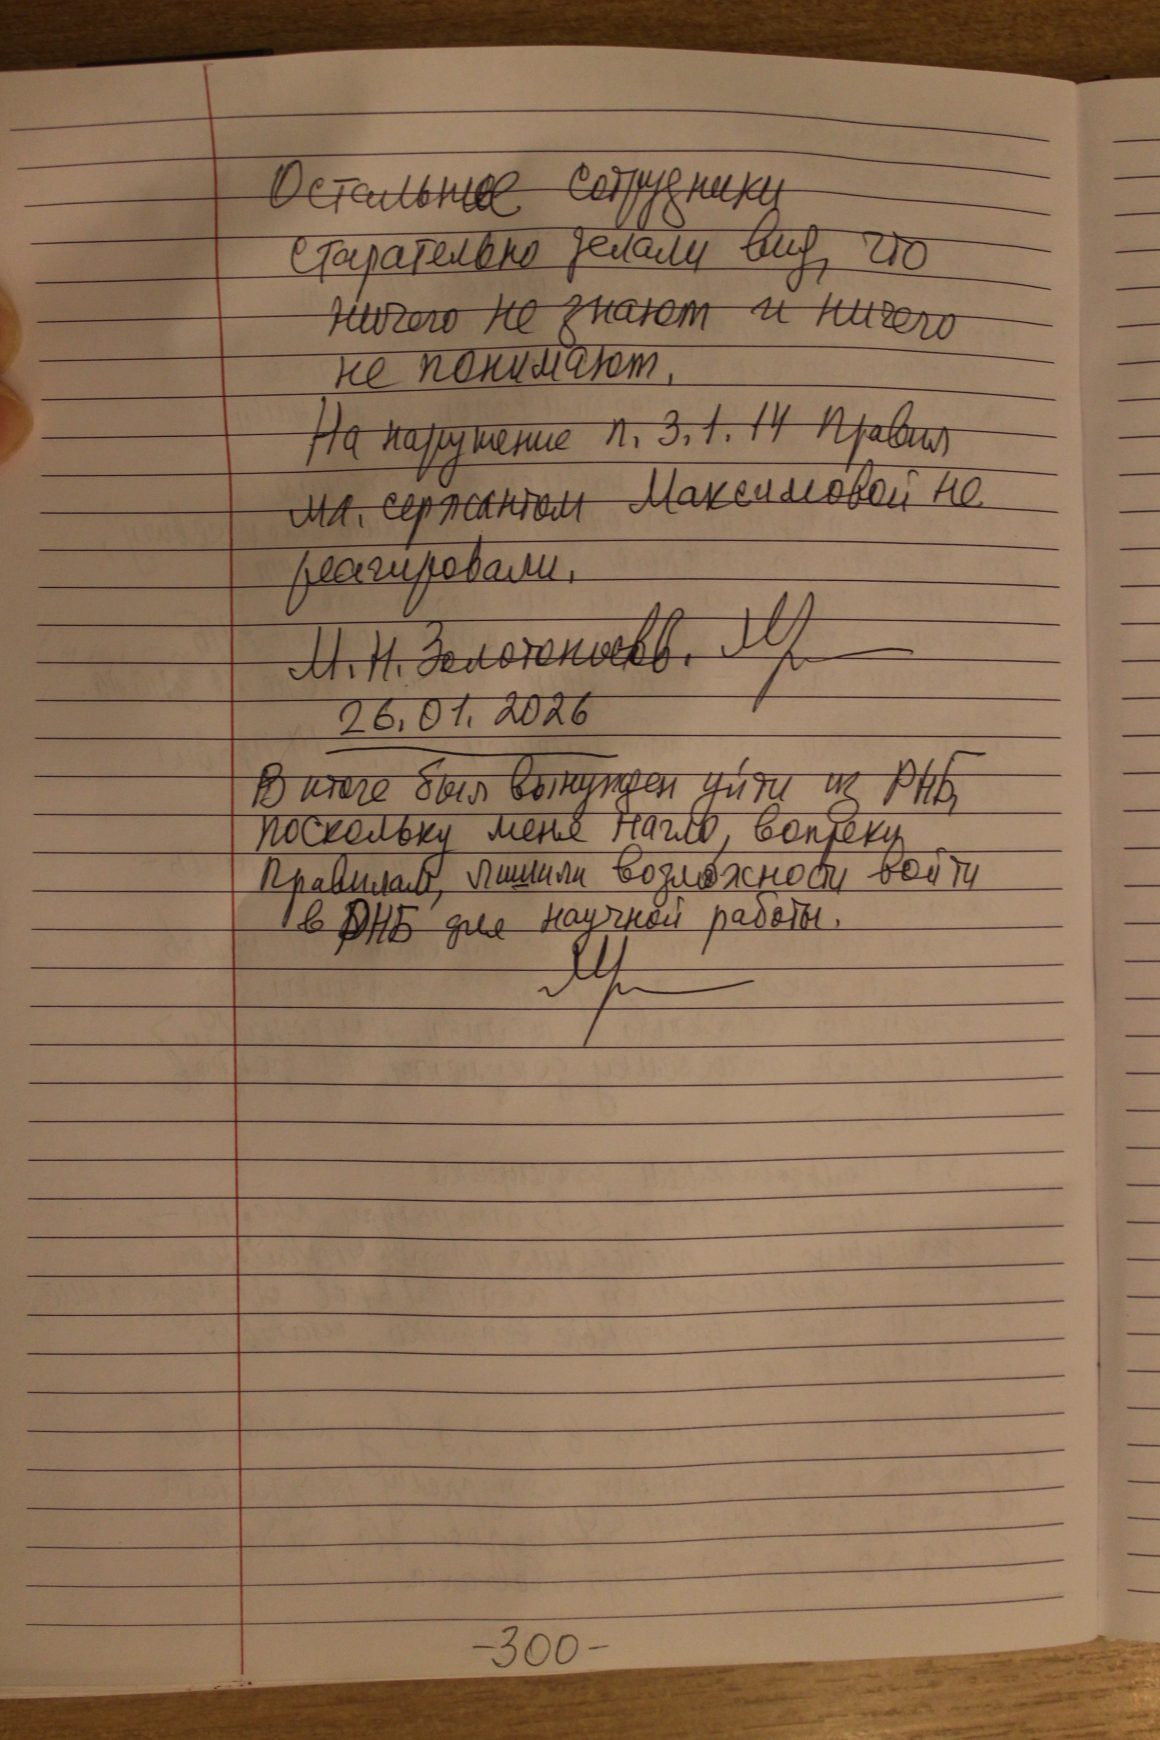 Остальные сотрудники
старательно делали вид, что
ничего не знают и ничего
не понимают.
На нарушение п. 3.1.14 Правил
мл. сержантом Максимовой не
реагировали.
М.Н. Золотоносов.
26.01.2026
В итоге был вынужден уйти из РНБ,
поскольку меня нагло, вопреки
Правилам, лишили возможности войти
в РНБ для научной работы.
-300-